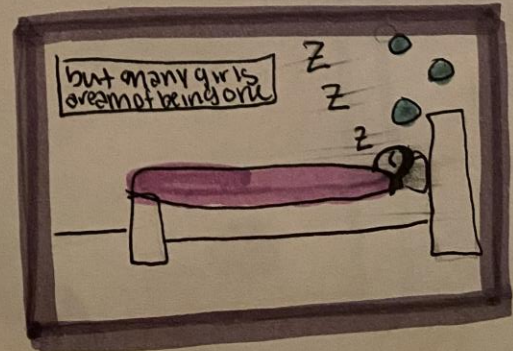 but many girls
dream of being one
Z
Z
Z